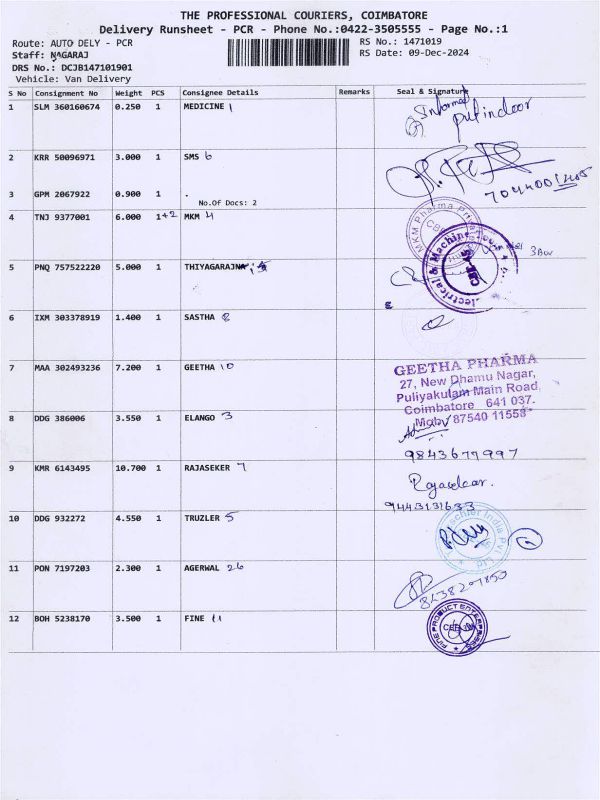 THE PROFESSIONAL COURIERS, COIMBATORE
Delivery Runsheet - PCR - Phone No.:0422-3505555 - Page No.:1
Route: AUTO DELY - PCR
RS No.: 1471019
Staff: NAGARAJ
RS Date: 09-Dec-2024
DRS No.: DCJB147101901
Vehicle: Van Delivery
S No Consignment No Weight PCS Consignee Details Remarks Seal & Signature
1 SLM 360160674 0.250 1 MEDICINE 1
2 KRR 50096971 3.000 1 SMS 6
3 GPM 2067922 0.900 1 .
No.Of Docs: 2
4 TNJ 9377001 6.000 1+2 MKM 4
MKM Pharma
Electrical & Machine
5 PNQ 757522220 5.000 1 THIYAGARAJN
6 IXM 303378919 1.400 1 SASTHA 8
7 MAA 302493236 7.200 1 GEETHA 10
GEETHA PHARMA
27, New Dhamu Nagar,
Puliyakulam Main Road,
Coimbatore 641 037.
Mob: 87540 11558
8 DDG 386006 3.550 1 ELANGO 3
9843677997
9 KMR 6143495 10.700 1 RAJASEKER 7
9443131633
10 DDG 932272 4.550 1 TRUZLER 5
India Pvt Ltd
11 PON 7197203 2.300 1 AGERWAL 26
8438207850
12 BOH 5238170 3.500 1 FINE 11
FINE PRODUCT ENTERPRISES